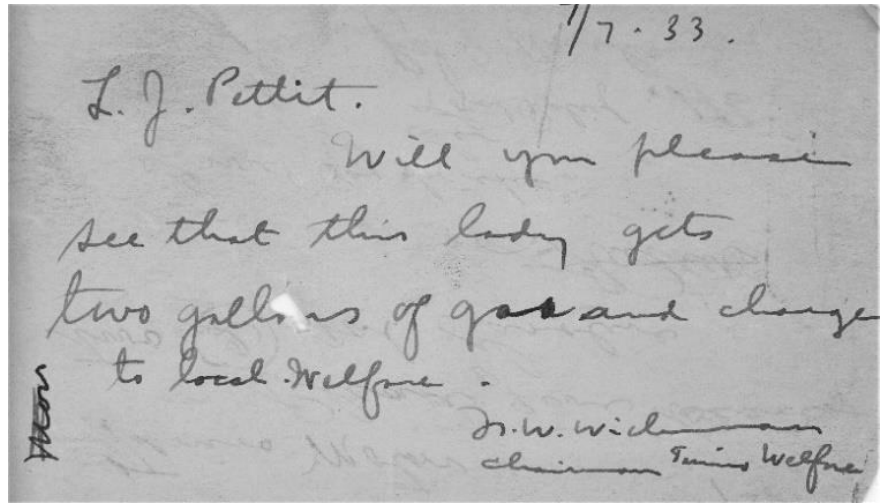 /7.33.
L. J. Pettit.
Will you please
see that this lady gets
two gallons of gas and change
to local Welfare.
W. Wichman
Chairman Welfare